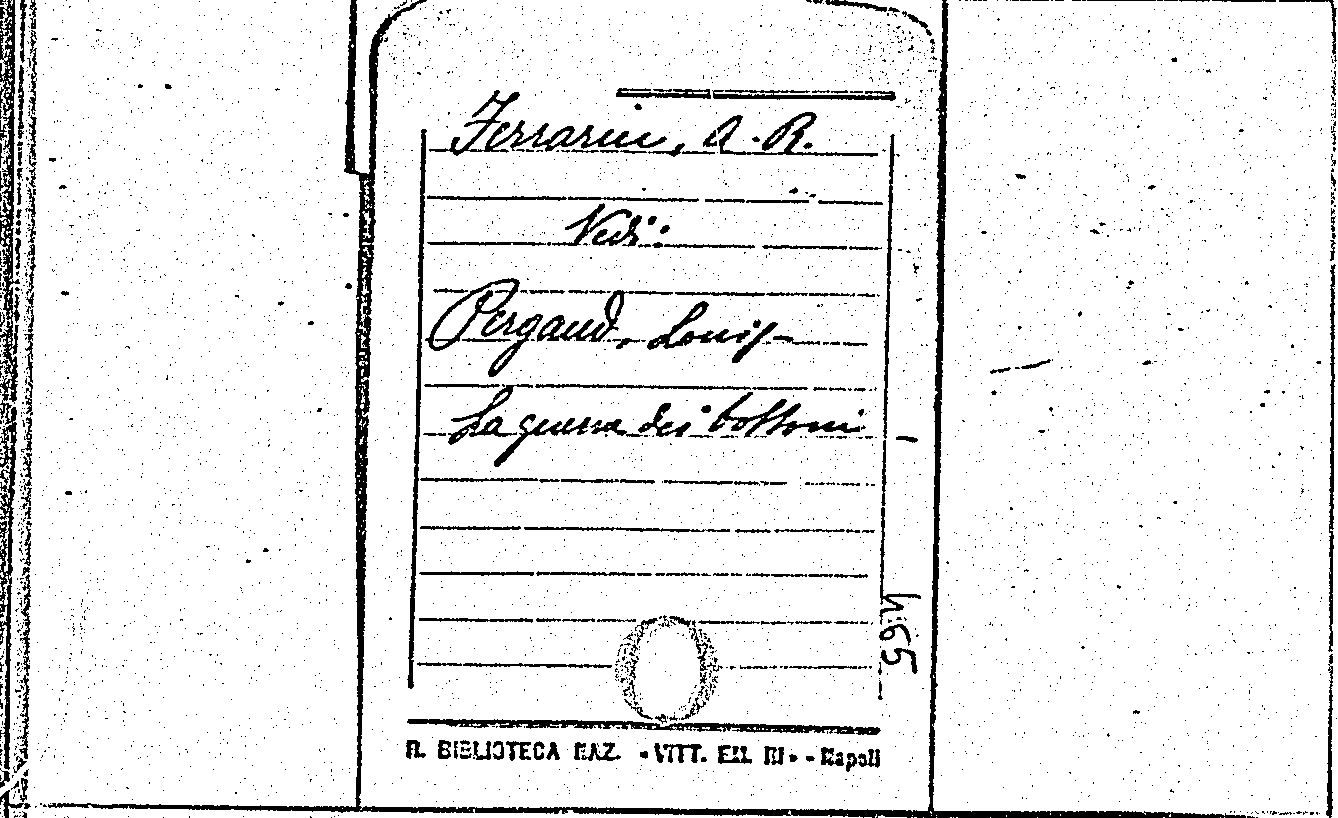 Ferrarin, A. R.
Vedi:
Pergaud, Louis-
La guerra dei bottoni
R. BIBLIOTECA NAZ. «VITT. EM. III» - Napoli